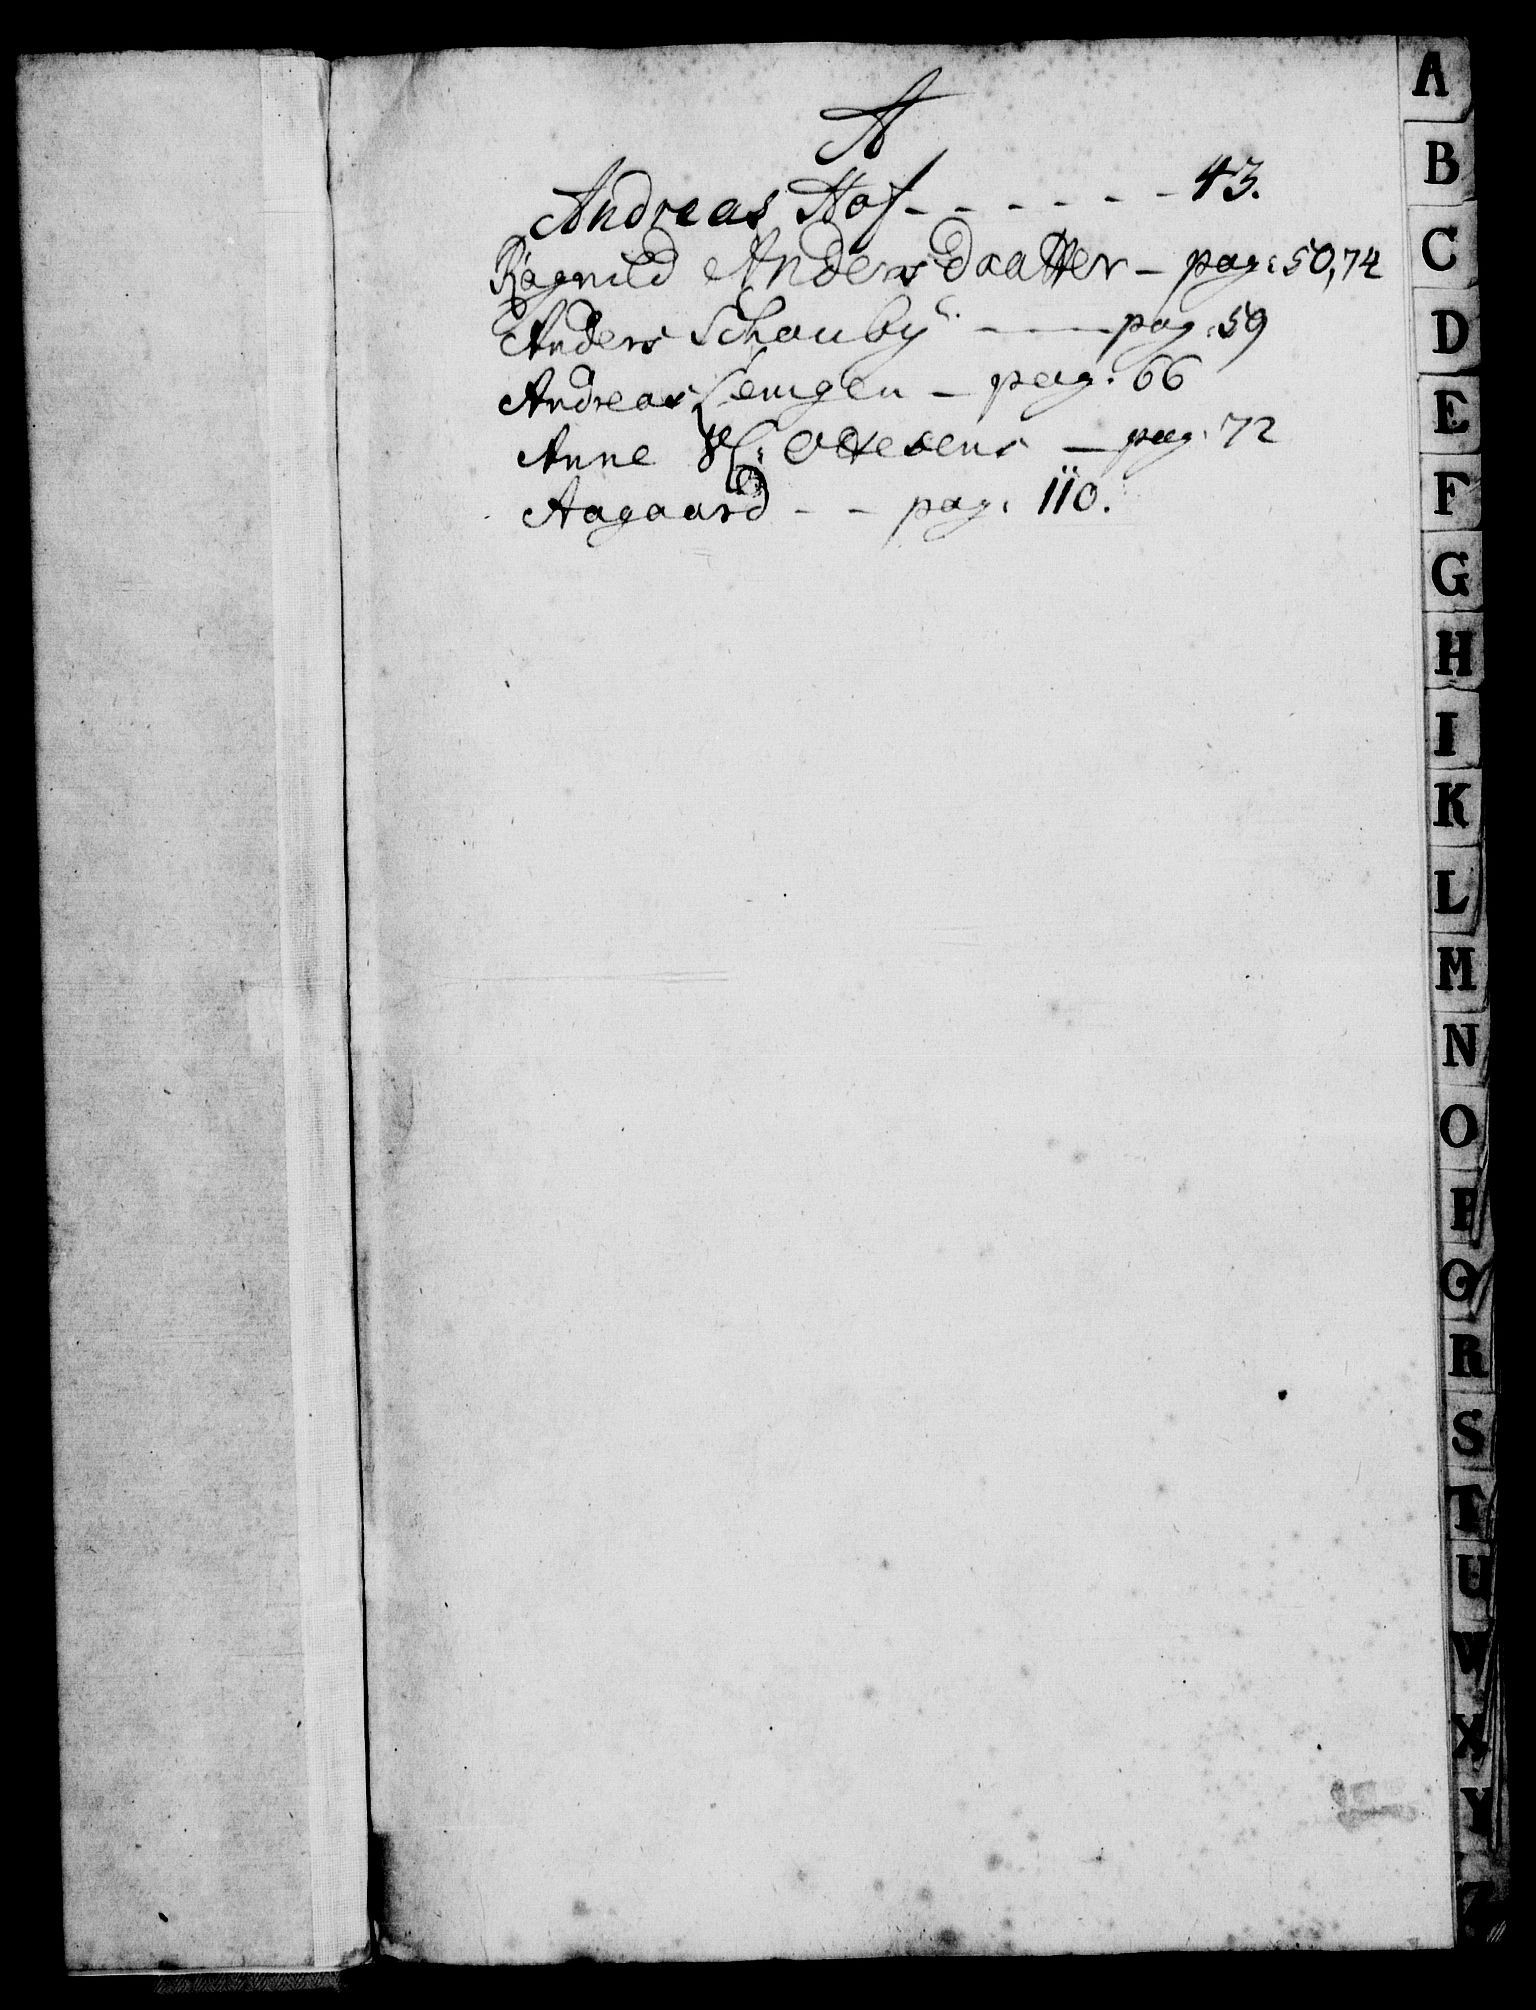 A
Andreas Hof - - - - - - 43.
Ragnild Andersdaatter - pag: 50,74
Anders Schouby - pag: 59
Andreas Lemgen - pag: 66
Anne Ottesens - pag: 72
Aagaard - - pag: 110.
A
B
C
D
E
F
G
H
I
K
L
M
N
O
P
Q
R
S
T
U
V
X
Y
Z